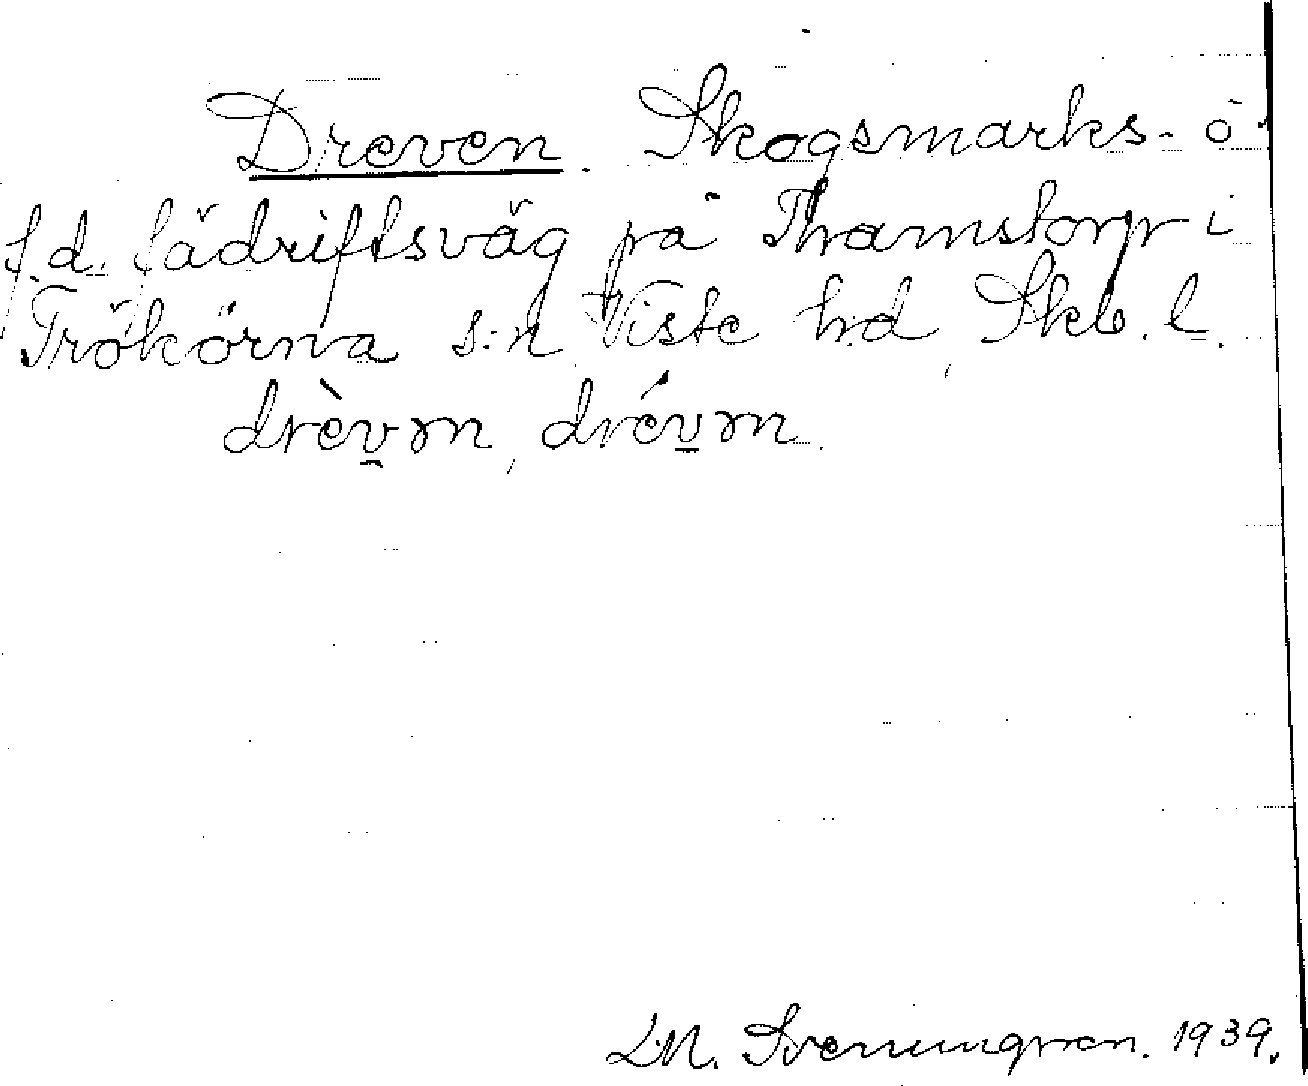 Dreven. Skogsmarks- o
f.d. fädriftsväg på Thamstorp i
Trökörna s:n, Viste hd, Skb. l.
drèvm, drévm.
L.M. Svenungsson. 1939.